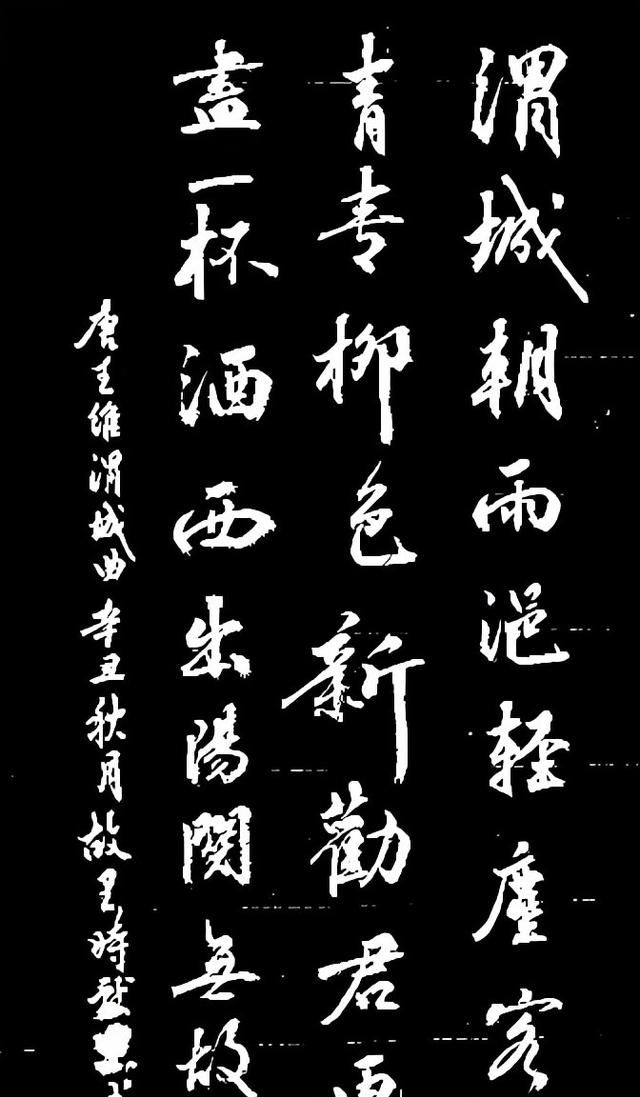 渭城朝雨浥輕塵客
青青柳色新勸君更
盡一杯酒西出陽關無故
唐王維渭城曲辛丑秋月故里時